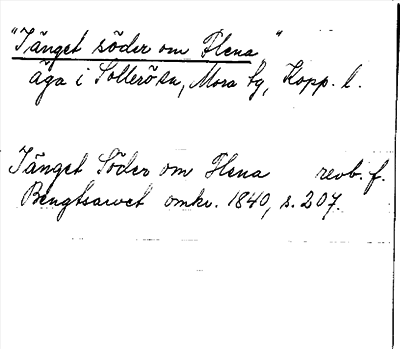 "Tänget söder om Flena"
äga i Sollerösn, Mora tg, Kopp. l.
Tänget Söder om Flena revb. f.
Bengtsarvet omkr. 1840, s. 207.